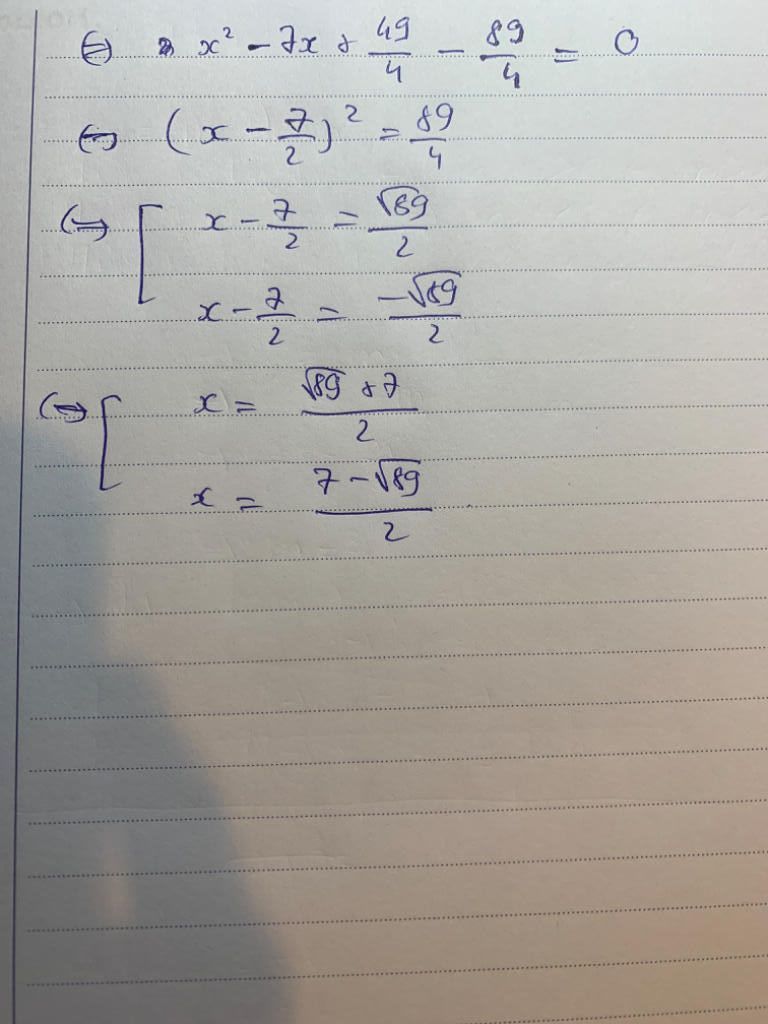 ⇔ x² - 7x + 49/4 - 89/4 = 0
⇔ (x - 7/2)² = 89/4
⇔ [ x - 7/2 = √89/2
x - 7/2 = -√89/2
⇔ [ x = (√89 + 7)/2
x = (7 - √89)/2